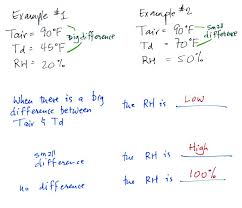 Example #1
Tair = 90°F
Td = 45°F
big difference
RH = 20%
Example #2
Tair = 90°F
Td = 70°F
small difference
RH = 50%
When there is a big
difference between
Tair & Td
the RH is Low
small
difference
the RH is High
no difference
the RH is 100%